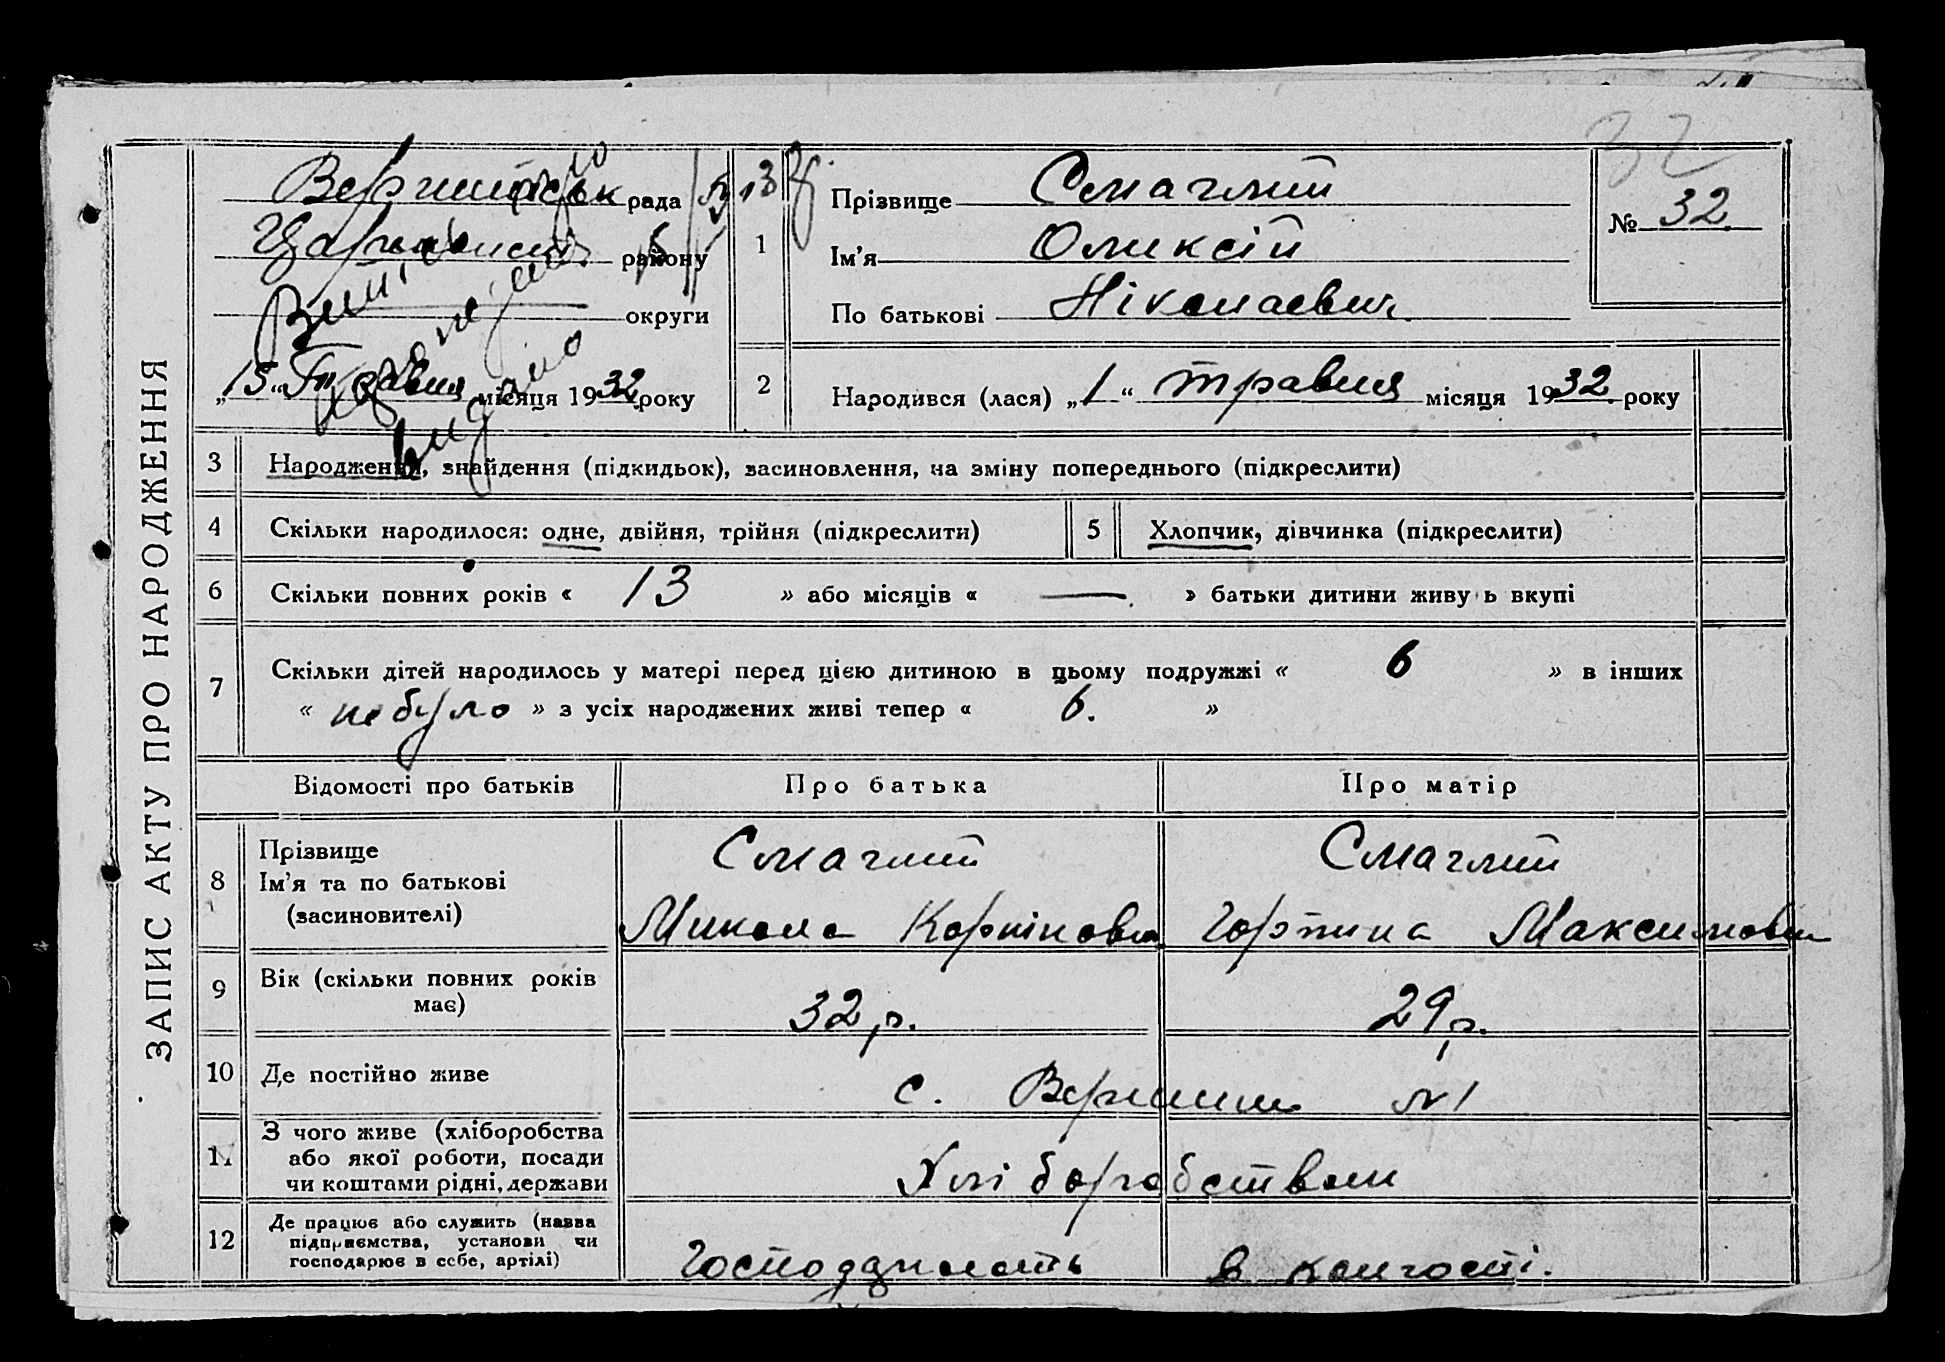 ЗАПИС АКТУ ПРО НАРОДЖЕННЯ
32
рада
району
округи
„15“ Травня місяця 1932 року
1
Прізвище Смаглий
Ім’я Олексій
По батькові Ніколаевич.
№ 32.
2
Народився (лася) „1“ травня місяця 1932 року
3
Народження, знайдення (підкидьок), засиновлення, на зміну попереднього (підкреслити)
4
Скільки народилося: одне, двійня, трійня (підкреслити)
5
Хлопчик, дівчинка (підкреслити)
6
Скільки повних років « 13 » або місяців « — » батьки дитини живуть вкупі
7
Скільки дітей народилось у матері перед цією дитиною в цьому подружжі « 6 » в інших
« не було » з усіх народжених живі тепер « 6. »
Відомості про батьків
Про батька
Про матір
8
Прізвище
Ім’я та по батькові
(засиновителі)
Смаглий
Микола
Смаглий
Горпина Максимовн
9
Вік (скільки повних років
має)
32 р.
29 р.
10
Де постійно живе
с. №1
11
З чого живе (хліборобства
або якої роботи, посади
чи коштами рідні, держави
Хліборобством
12
Де працює або служить (назва
підприємства, установи чи
господарює в себе, артілі)
в колгоспі.